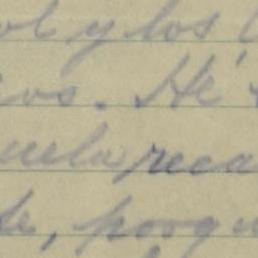 ol y los
os. Hé
uela reca
te, porqu